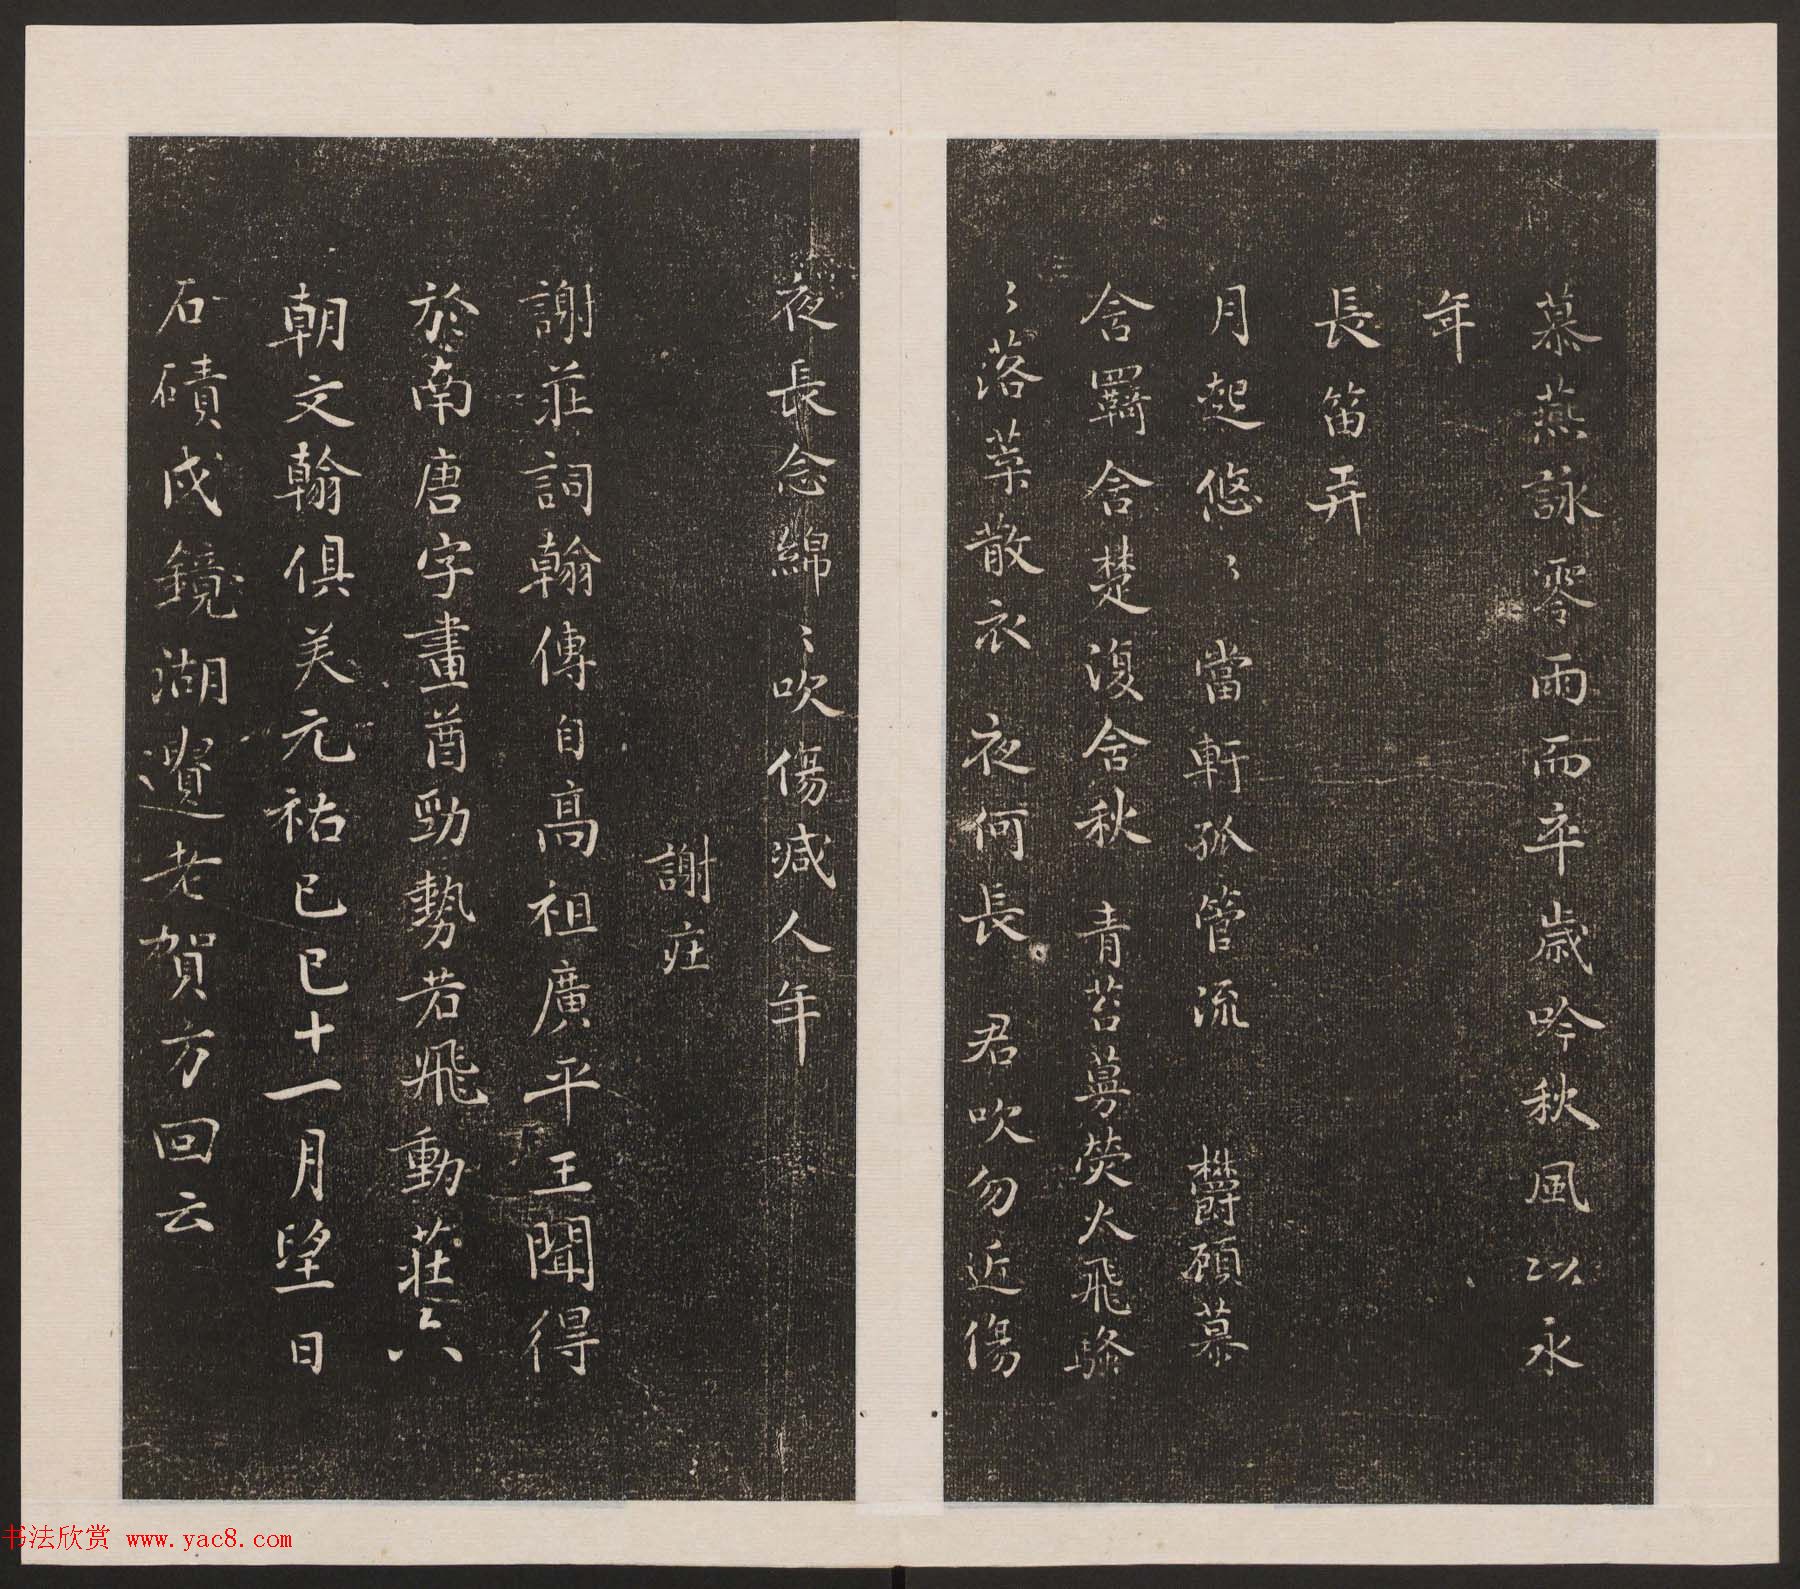 慕燕詠零雨而卒歲吟秋風以永
年
長笛弄
月起悠〻當軒孤管流 欝顧慕
含羈含楚復含秋 青苔蔓熒火飛騷
〻落葉散衣 夜何長 君吹勿近傷
夜長念綿〻吹傷減人年
謝庄
謝莊詞翰傳自高祖廣平王聞得
於南唐字畫酋勁勢若飛動莊六
朝文翰俱美元祐已已十一月望日
石磧戍鏡湖遺老賀方回云
书法欣赏 www.yac8.com